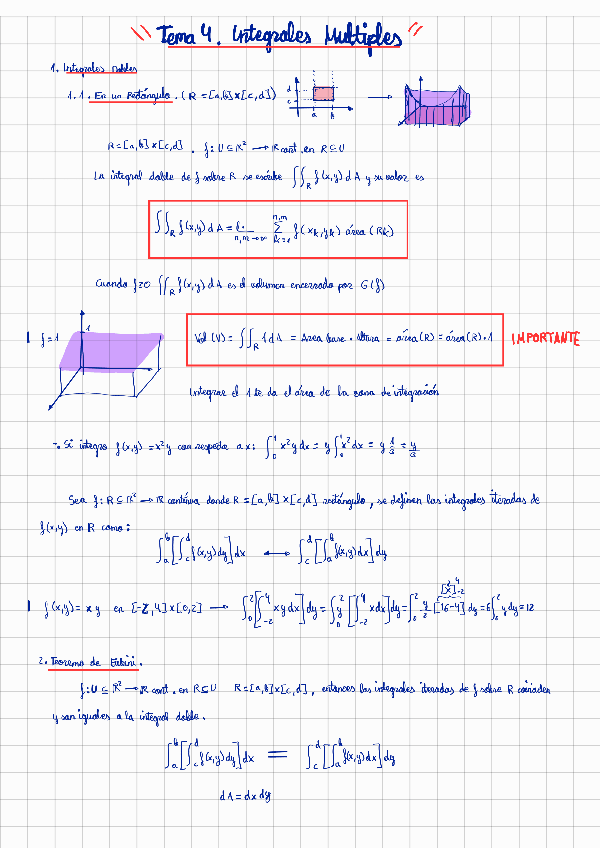 "Tema 4. Integrales Multiples"
1. Integrales Dobles
1.1. En un Rectángulo. (R = [a,b]x[c,d])
d
c
a b
R = [a,b]x[c,d] . f: U ⊆ R² → R cont. en R ⊆ U
La integral doble de f sobre R se escribe ∬_R f(x,y) dA y su valor es
∬_R f(x,y) dA = lim_{n,m→∞} ∑_{k=1}^{n,m} f(xk,yk) área (Rk)
Cuando f≥0 ∬_R f(x,y) dA es el volumen encerrado por G(f)
f=1
1
Vol (V) = ∬_R 1dA = Area base · altura = área(R) = área(R)·1
IMPORTANTE
Integrar el 1 te da el área de la zona de integración
Si integro f(x,y) = x²y con respecto a x: ∫_0^1 x²y dx = y∫_0^1 x² dx = y 1/3 = y/3
Sea f: R ⊆ R² → R contínua donde R = [a,b]x[c,d] rectángulo, se definen las integrales iteradas de
f(x,y) en R como:
∫_a^b [∫_c^d f(x,y)dy] dx ↔ ∫_c^d [∫_a^b f(x,y)dx] dy
f(x,y) = xy en [-2,4]x[0,2] → ∫_0^2 [∫_{-2}^4 xy dx] dy = ∫_0^2 y [∫_{-2}^4 x dx] dy = ∫_0^2 y/2 [16-4] dy = 6∫_0^2 y dy = 12
[x²]_{-2}^4
2. Teorema de Fubini.
f: U ⊆ R² → R cont. en R⊆U R = [a,b]x[c,d], entonces las integrales iteradas de f sobre R coinciden
y son iguales a la integral doble.
∫_a^b [∫_c^d f(x,y)dy] dx = ∫_c^d [∫_a^b f(x,y)dx] dy
dA = dx dy